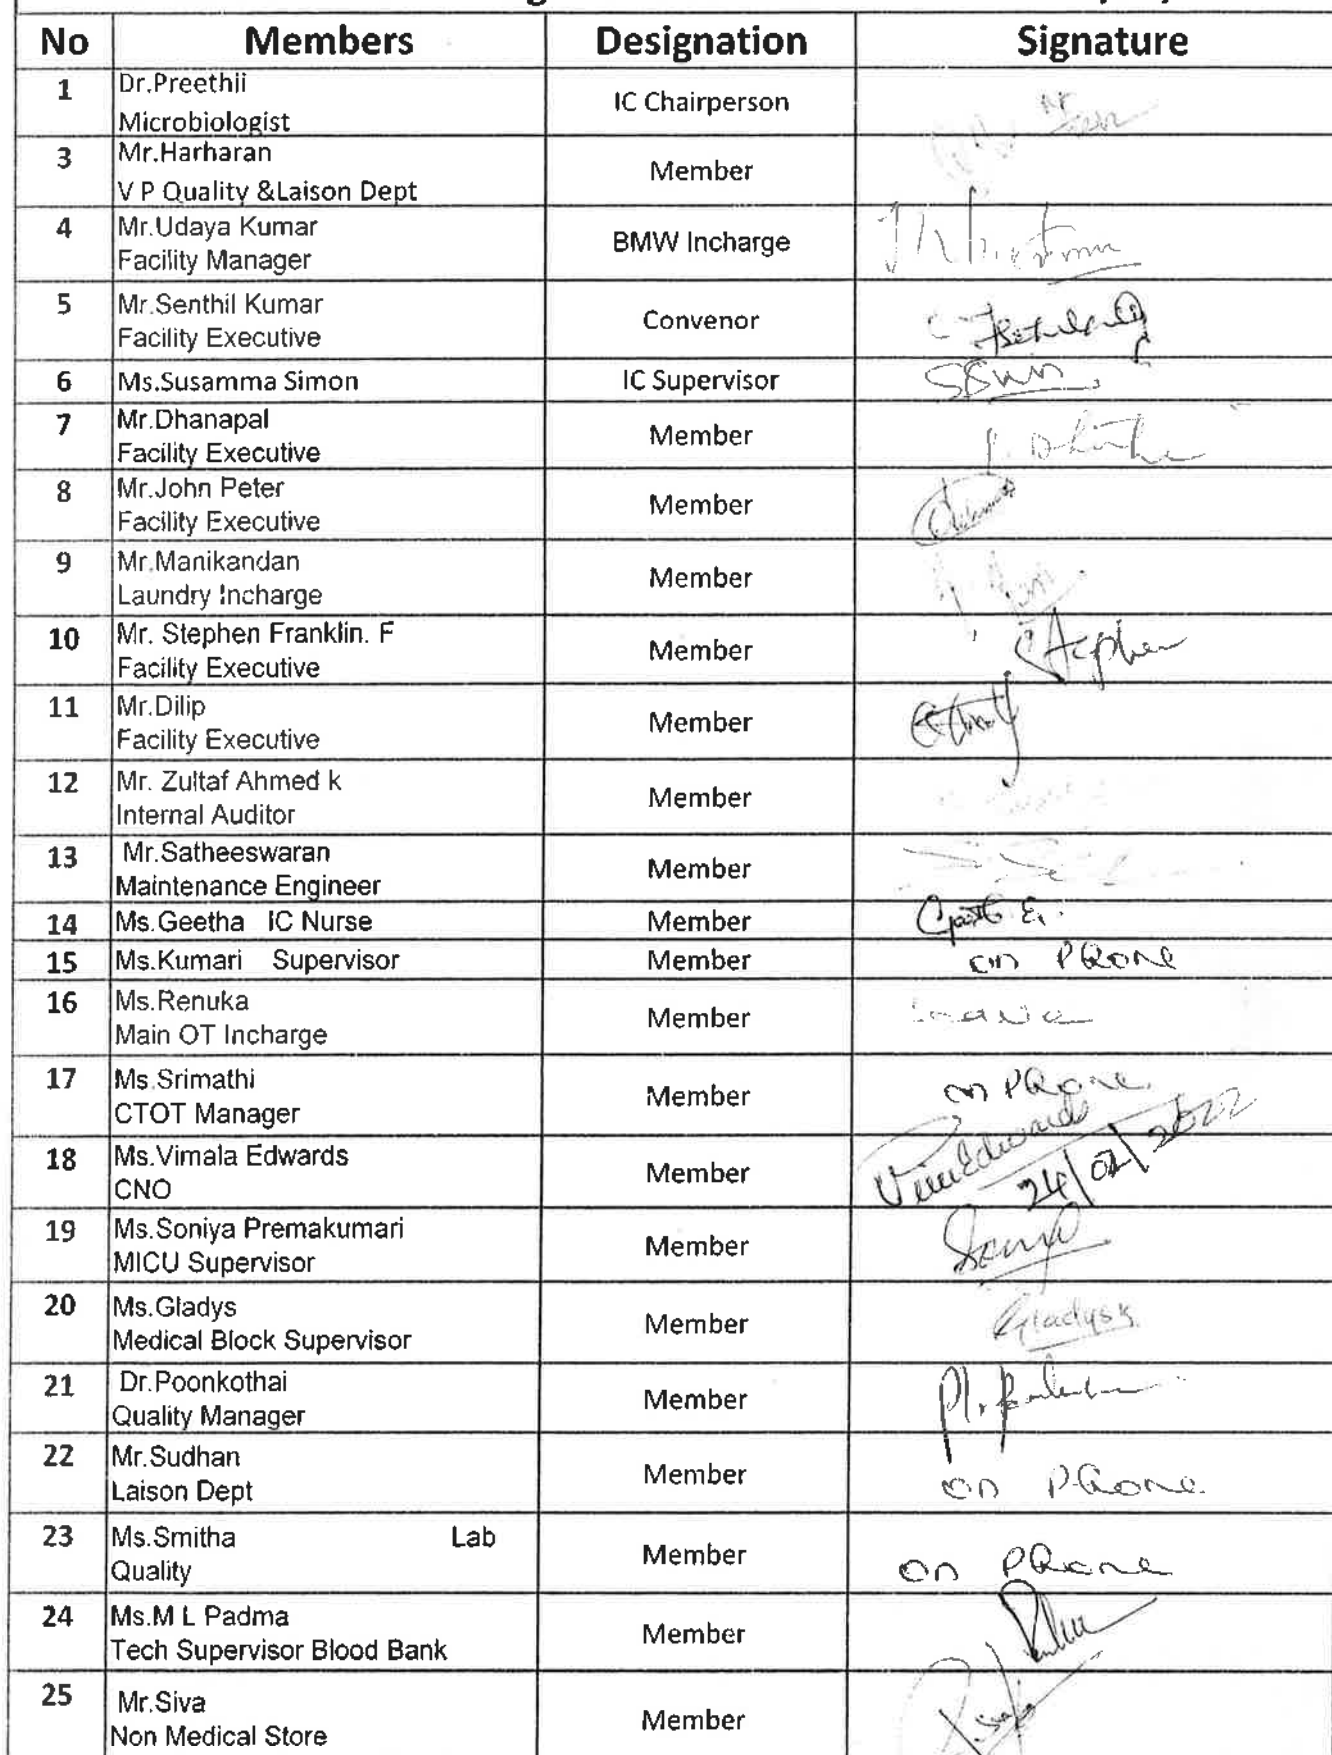 No Members Designation Signature
1 Dr.Preethii
Microbiologist IC Chairperson
3 Mr.Harharan
V P Quality &Laison Dept Member
4 Mr.Udaya Kumar
Facility Manager BMW Incharge
5 Mr.Senthil Kumar
Facility Executive Convenor
6 Ms.Susamma Simon IC Supervisor
7 Mr.Dhanapal
Facility Executive Member
8 Mr.John Peter
Facility Executive Member
9 Mr.Manikandan
Laundry Incharge Member
10 Mr. Stephen Franklin. F
Facility Executive Member Stephen
11 Mr.Dilip
Facility Executive Member
12 Mr. Zultaf Ahmed k
Internal Auditor Member
13 Mr.Satheeswaran
Maintenance Engineer Member
14 Ms.Geetha IC Nurse Member
15 Ms.Kumari Supervisor Member on Phone
16 Ms.Renuka
Main OT Incharge Member
17 Ms.Srimathi
CTOT Manager Member on Phone
18 Ms.Vimala Edwards
CNO Member 24/02/2022
19 Ms.Soniya Premakumari
MICU Supervisor Member
20 Ms.Gladys
Medical Block Supervisor Member Gladys k
21 Dr.Poonkothai
Quality Manager Member
22 Mr.Sudhan
Laison Dept Member on Phone
23 Ms.Smitha Lab
Quality Member on Phone
24 Ms.M L Padma
Tech Supervisor Blood Bank Member
25 Mr.Siva
Non Medical Store Member